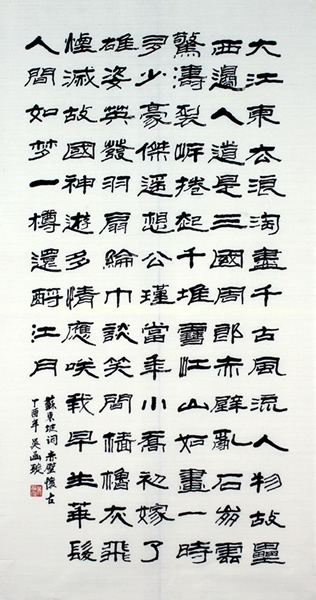 大江東去浪淘盡千古風流人物故壘
西邊人道是三國周郎赤壁亂石崩雲
驚濤裂岸捲起千堆雪江山如畫一時
多少豪傑遥想公瑾當年小喬初嫁了
雄姿英發羽扇綸巾談笑間檣櫓灰飛
煙滅故國神遊多情應笑我早生華髮
人間如梦一樽還酹江月
蘇東坡詞赤壁懷古
丁酉年吴